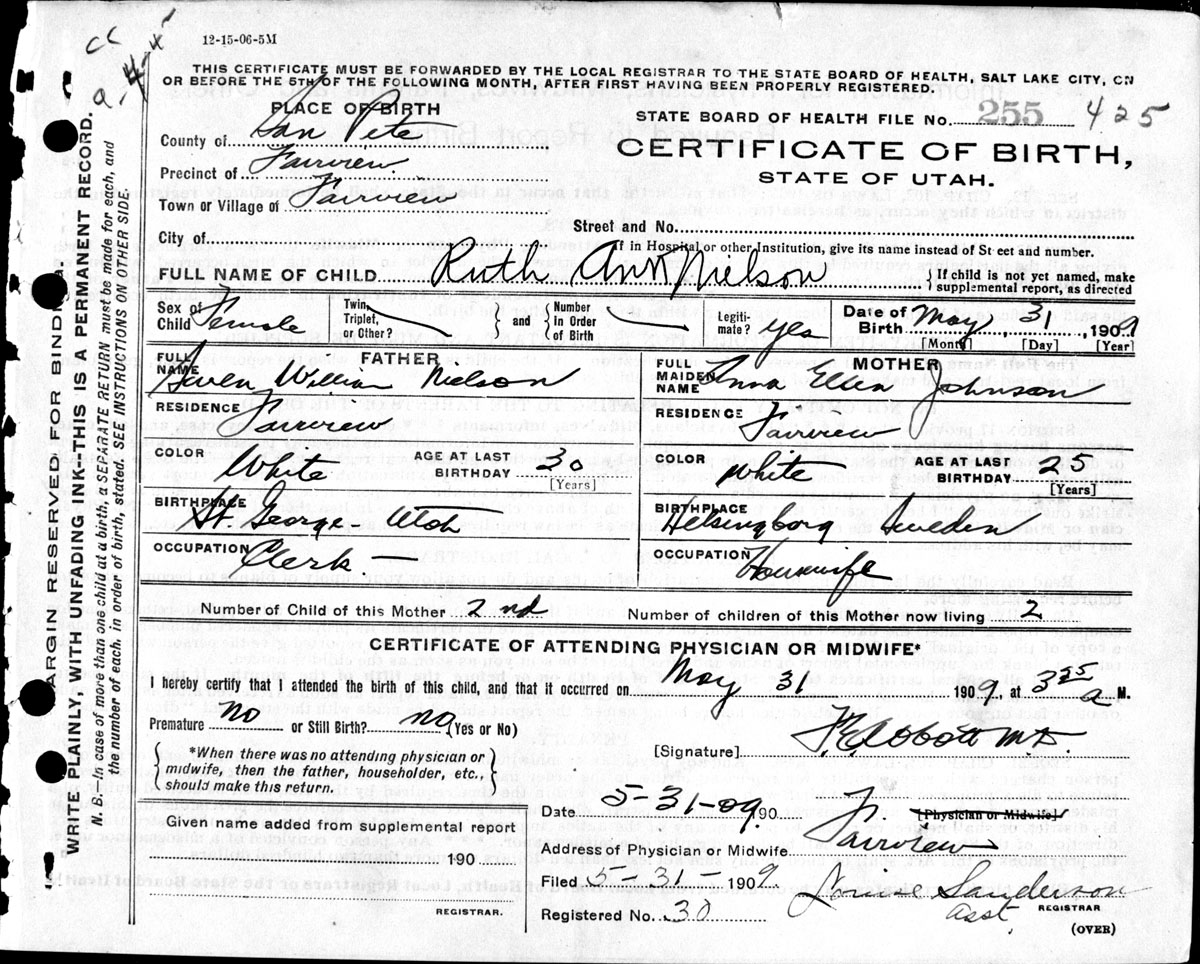 12-15-06-5M
THIS CERTIFICATE MUST BE FORWARDED BY THE LOCAL REGISTRAR TO THE STATE BOARD OF HEALTH, SALT LAKE CITY, CN
OR BEFORE THE 5TH OF THE FOLLOWING MONTH, AFTER FIRST HAVING BEEN PROPERLY REGISTERED.
PLACE OF BIRTH
STATE BOARD OF HEALTH FILE No. 255 425
County of San Pete
CERTIFICATE OF BIRTH,
STATE OF UTAH.
Precinct of Fairview
Town or Village of Fairview
Street and No.
City of
If in Hospital or other Institution, give its name instead of St eet and number.
FULL NAME OF CHILD Ruth Ann Nielson
{If child is not yet named, make
supplemental report, as directed
Sex of Child Female
Twin, Triplet, or Other? } and { Number In Order of Birth
Legiti-mate? yes
Date of Birth May 31 1909
[Month] [Day] [Year]
FULL NAME FATHER
Swen William Nielson
FULL MAIDEN NAME MOTHER
Anna Ellen Johnson
RESIDENCE Fairview
RESIDENCE Fairview
COLOR White AGE AT LAST BIRTHDAY 30
[Years]
COLOR White AGE AT LAST BIRTHDAY 25
[Years]
BIRTHPLACE
St. George - Utah
BIRTHPLACE
Helsingborg Sweden
OCCUPATION
Clerk
OCCUPATION
Housewife
Number of Child of this Mother 2nd
Number of children of this Mother now living 2
CERTIFICATE OF ATTENDING PHYSICIAN OR MIDWIFE*
I hereby certify that I attended the birth of this child, and that it occurred on May 31 1909, at 3 25 a M.
Premature no or Still Birth? no (Yes or No)
{ *When there was no attending physician or
midwife, then the father, householder, etc.,
should make this return. }
[Signature] Abbott M.D.
[Physician or Midwife]
Given name added from supplemental report
190
REGISTRAR.
Date 5-31-09 190
Address of Physician or Midwife Fairview
Filed 5-31-1909
Louise Sanderson
Asst REGISTRAR
Registered No. 30
(OVER)
MARGIN RESERVED FOR BINDING.
WRITE PLAINLY, WITH UNFADING INK--THIS IS A PERMANENT RECORD.
N. B.--In case of more than one child at a birth, a SEPARATE RETURN must be made for each, and
the number of each, in order of birth, stated. SEE INSTRUCTIONS ON OTHER SIDE.